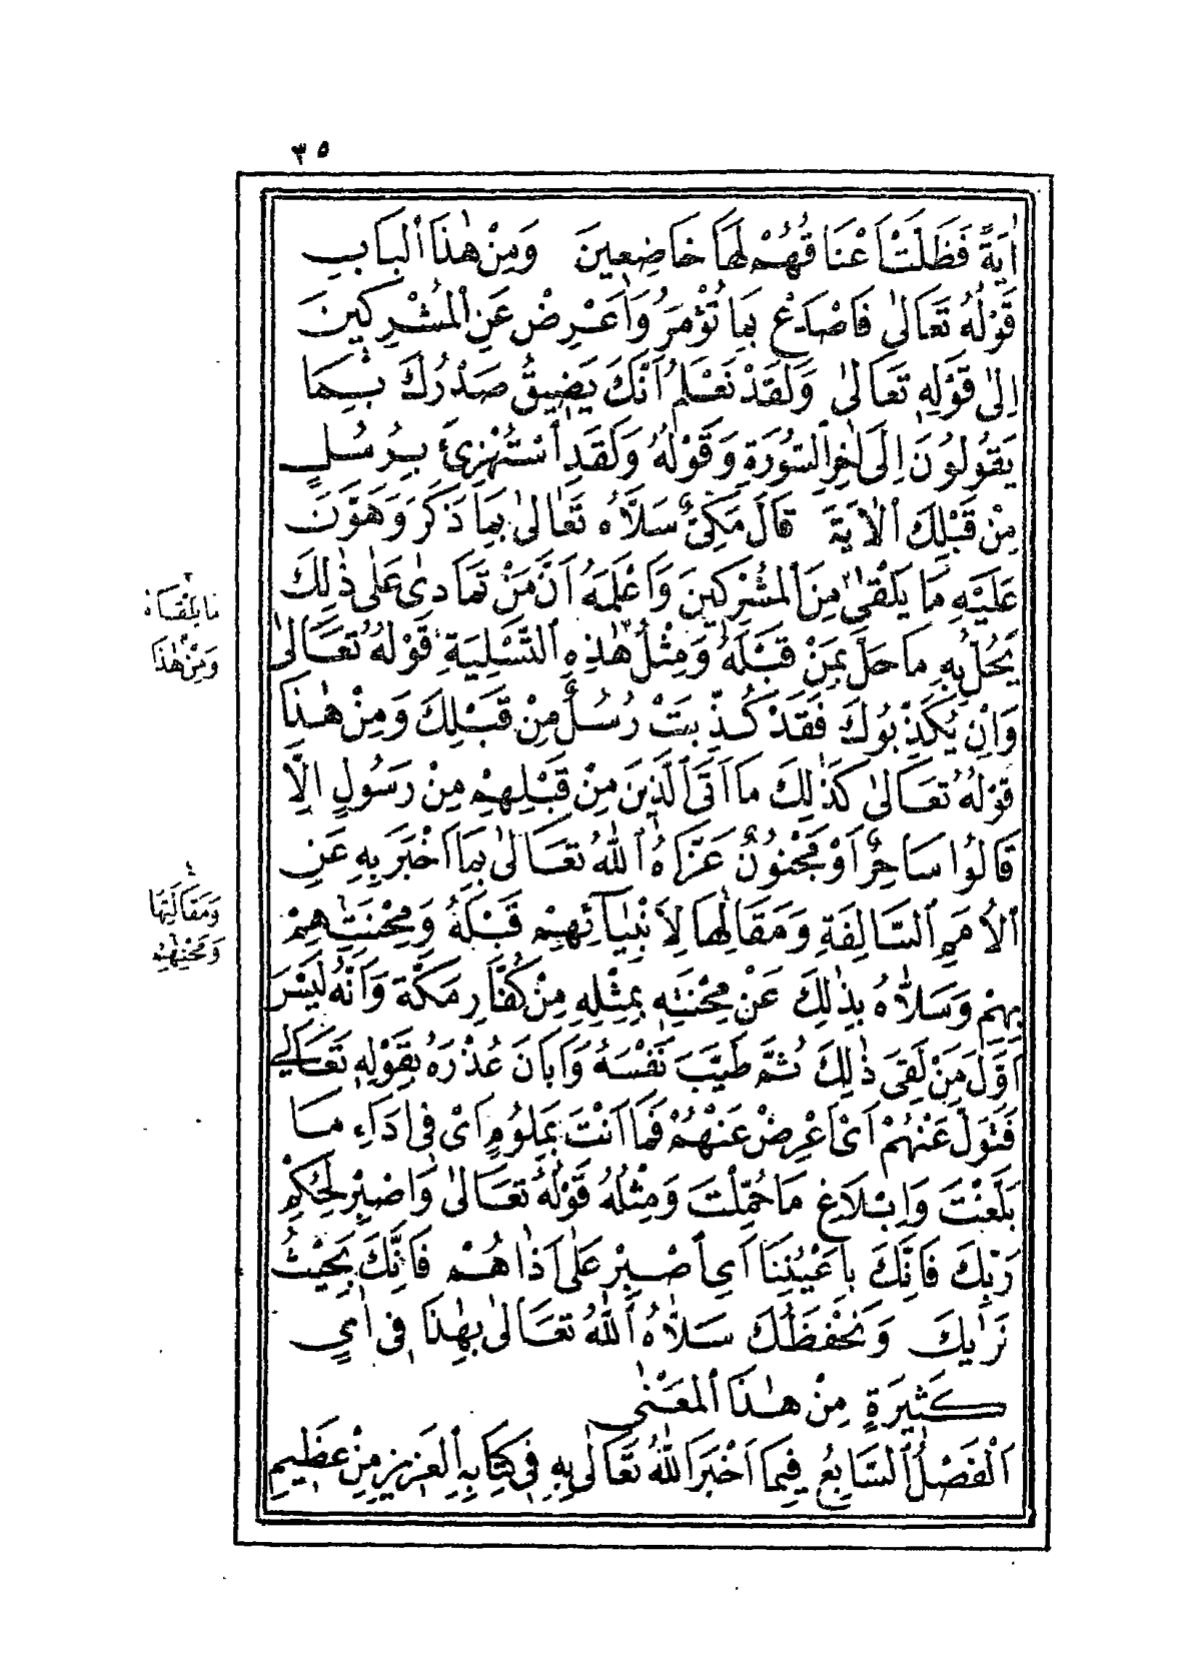 ٣٥
اٰيَةً فَظَلَّتْ اَعْنَاقُهُمْ لَهَا خَاضِعِينَ وَمِنْ هٰذَا الْبَابِ
قَوْلُهُ تَعَالٰى فَاصْدَعْ بِمَا تُؤْمَرُ وَاَعْرِضْ عَنِ الْمُشْرِكِينَ
اِلٰى قَوْلِهِ تَعَالٰى وَلَقَدْ نَعْلَمُ اَنَّكَ يَضِيقُ صَدْرُكَ بِمَا
يَقُولُونَ اِلَى اٰخِرِ السُّورَةِ وَقَوْلُهُ وَلَقَدِ اسْتُهْزِئَ بِرُسُلٍ
مِنْ قَبْلِكَ الْاٰيَةَ قَالَ مَكِّىٌّ سَلَّاهُ تَعَالٰى بِمَا ذَكَرَ وَهَوَّنَ
عَلَيْهِ مَا يَلْقٰى مِنَ الْمُشْرِكِينَ وَاَعْلَمَهُ اَنَّ مَنْ تَمَادٰى عَلٰى ذٰلِكَ
يَحُلُّ بِهِ مَا حَلَّ بِمَنْ قَبْلَهُ وَمِثْلُ هٰذِهِ التَّسْلِيَةِ قَوْلُهُ تَعَالٰى
وَاِنْ يُكَذِّبُوكَ فَقَدْ كُذِّبَتْ رُسُلٌ مِنْ قَبْلِكَ وَمِنْ هٰذَا
قَوْلُهُ تَعَالٰى كَذٰلِكَ مَا اَتَى الَّذِينَ مِنْ قَبْلِهِمْ مِنْ رَسُولٍ اِلَّا
قَالُوا سَاحِرٌ اَوْ مَجْنُونٌ عَزَّاهُ اللّٰهُ تَعَالٰى بِمَا اَخْبَرَ بِهِ عَنِ
الْاُمَمِ السَّالِفَةِ وَمَقَالِهَا لِاَنْبِيَائِهِمْ قَبْلَهُ وَمِحْنَتِهِمْ
بِهِمْ وَسَلَّاهُ بِذٰلِكَ عَنْ مِحْنَتِهِ بِمِثْلِهِ مِنْ كُفَّارِ مَكَّةَ وَاَنَّهُ لَيْسَ
اَوَّلَ مَنْ لَقِىَ ذٰلِكَ ثُمَّ طَيَّبَ نَفْسَهُ وَاَبَانَ عُذْرَهُ بِقَوْلِهِ تَعَالٰى
فَتَوَلَّ عَنْهُمْ اَىْ اَعْرِضْ عَنْهُمْ فَمَا اَنْتَ بِمَلُومٍ اَىْ فِى اَدَاءِ مَا
بَلَّغْتَ وَاِبْلَاغِ مَا حُمِّلْتَ وَمِثْلُهُ قَوْلُهُ تَعَالٰى وَاصْبِرْ لِحُكْمِ
رَبِّكَ فَاِنَّكَ بِاَعْيُنِنَا اَىِ اصْبِرْ عَلٰى اَذَاهُمْ فَاِنَّكَ بِحَيْثُ
نَرَاكَ وَنَحْفَظُكَ سَلَّاهُ اللّٰهُ تَعَالٰى بِهٰذَا فِى اٰيٍ
كَثِيرَةٍ مِنْ هٰذَا الْمَعْنٰى
اَلْفَصْلُ السَّابِعُ فِيمَا اَخْبَرَ اللّٰهُ تَعَالٰى بِهِ فِى كِتَابِهِ الْعَزِيزِ مِنْ عَظِيمِ
٢
مَا يَلْقَاهُ
وَمِنْ هٰذَا
٤
وَمَقَالَتِهَا
وَمِحْنَتِهِ